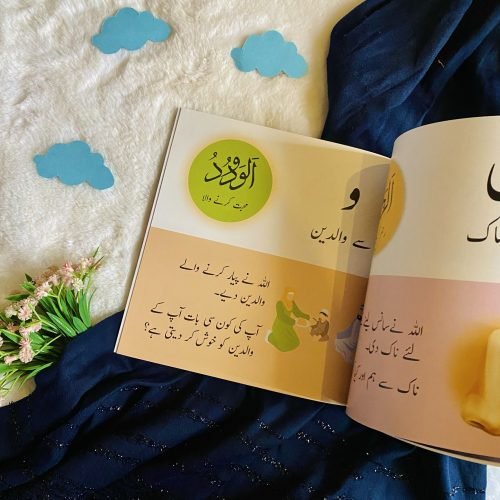 اَلْوَدُوْدُ
محبت کرنے والا
و
سے والدین
اللہ نے پیار کرنے والے
والدین دیے۔
آپ کی کون سی بات آپ کے
والدین کو خوش کر دیتی ہے؟
ناک
اللہ نے سانس لینے
لئے ناک دی۔
ناک سے ہم اور